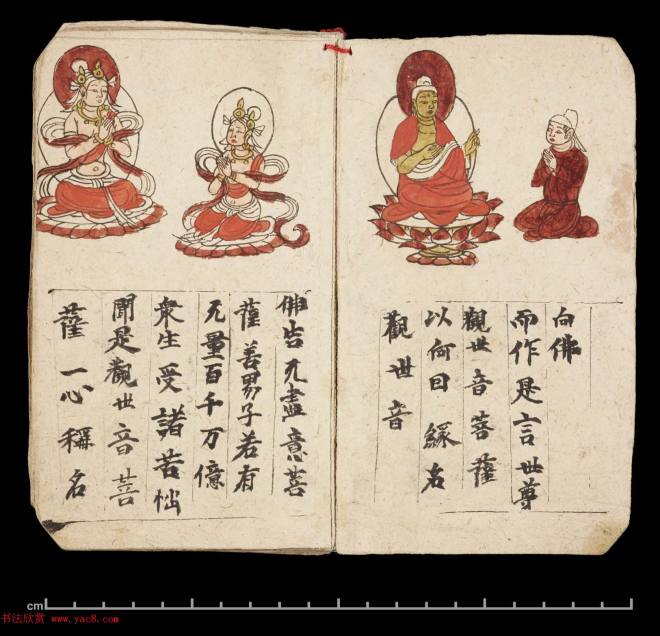 向佛
而作是言世尊
觀世音菩薩
以何因緣名
觀世音
佛告无盡意菩
薩善男子若有
无量百千万億
衆生受諸苦惱
聞是觀世音菩
薩一心稱名
cm
书法欣赏 www.yac8.com